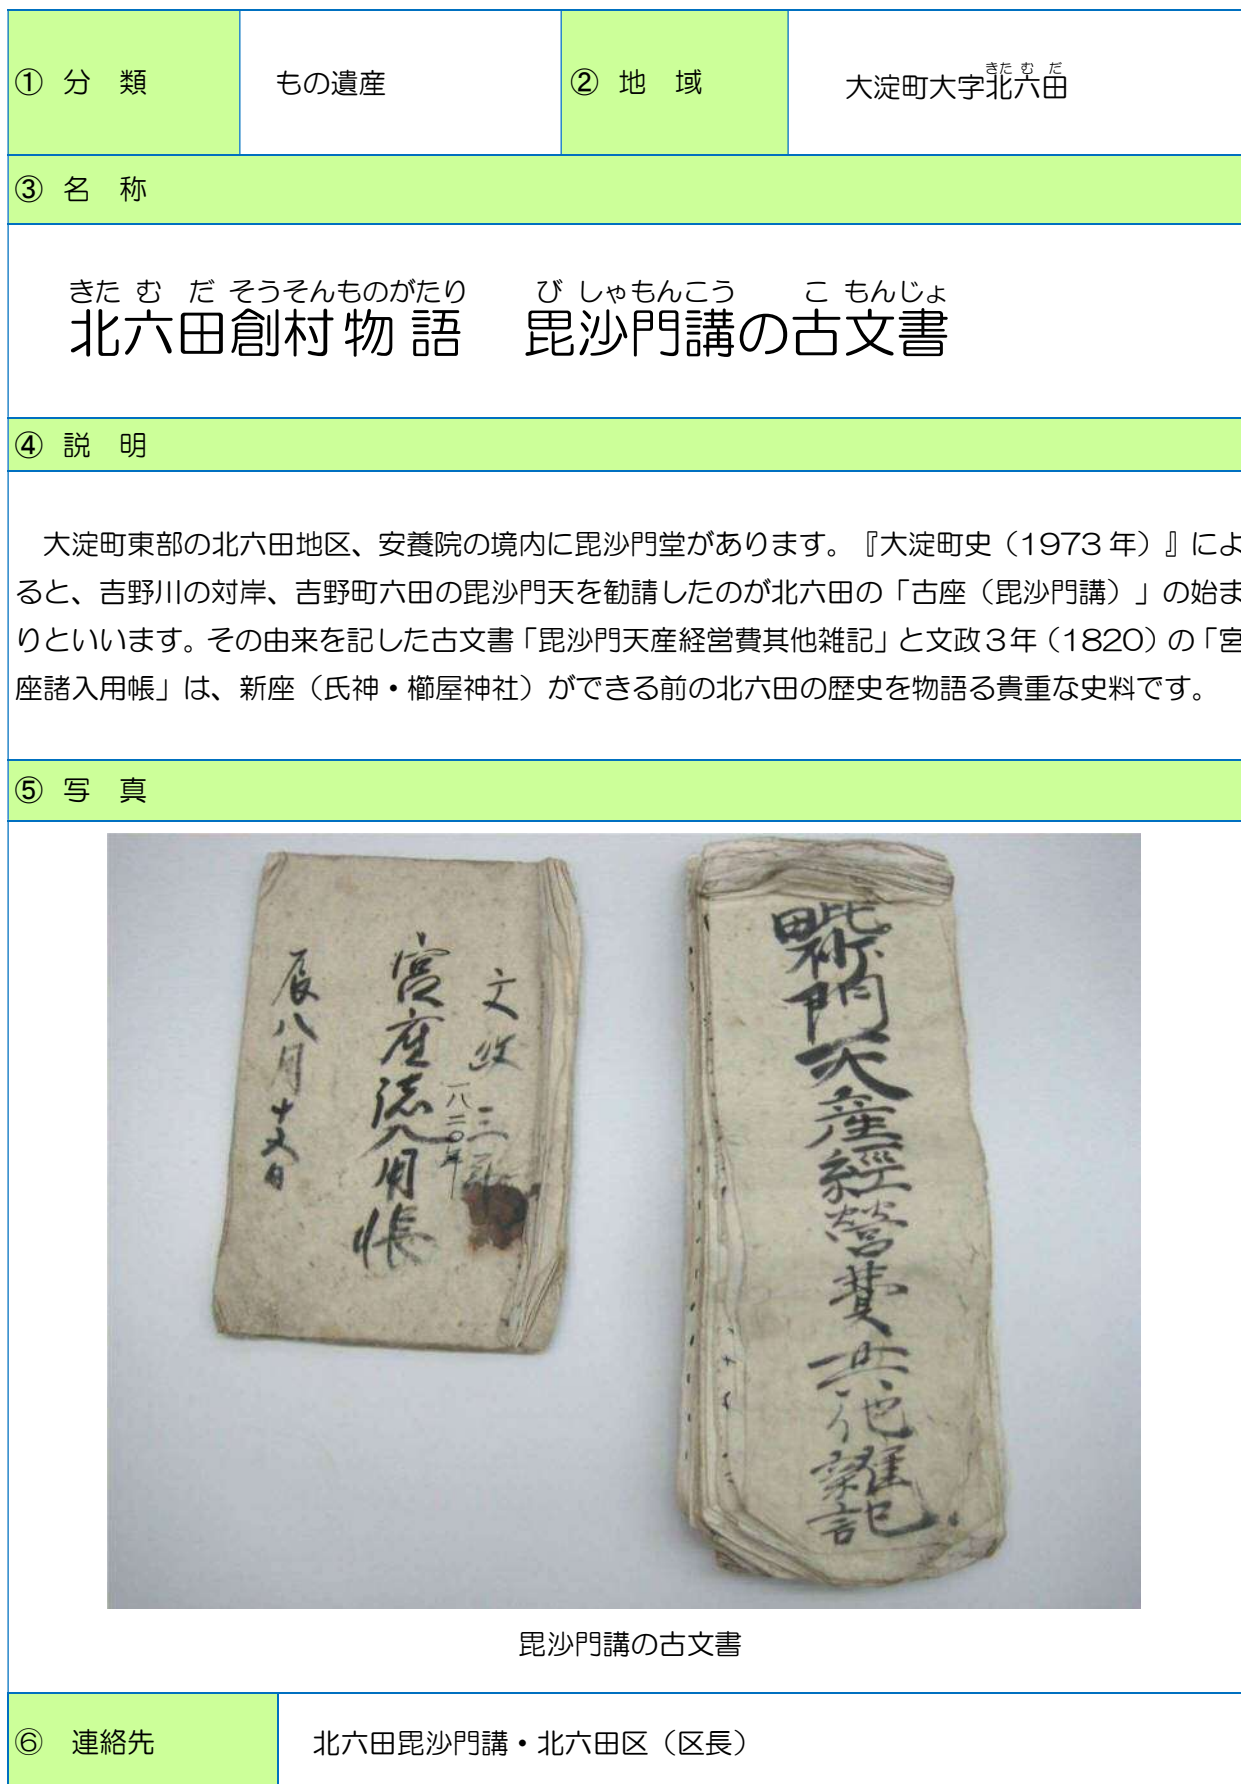 ① 分 類
もの遺産
② 地 域
きた む だ
大淀町大字北六田
③ 名 称
きた む だ そうそんものがたり び しゃもんこう こ もんじょ
北六田創村物語 毘沙門講の古文書
④ 説 明
大淀町東部の北六田地区、安養院の境内に毘沙門堂があります。『大淀町史（1973年）』によ
ると、吉野川の対岸、吉野町六田の毘沙門天を勧請したのが北六田の「古座（毘沙門講）」の始ま
りといいます。その由来を記した古文書「毘沙門天産経営費其他雑記」と文政３年（1820）の「宮
座諸入用帳」は、新座（氏神・櫛屋神社）ができる前の北六田の歴史を物語る貴重な史料です。
⑤ 写 真
毗沙門天産經營費其他雜記
文政三
一八二〇年
宮座諸入用帳
辰八月十 日
毘沙門講の古文書
⑥ 連絡先
北六田毘沙門講・北六田区（区長）